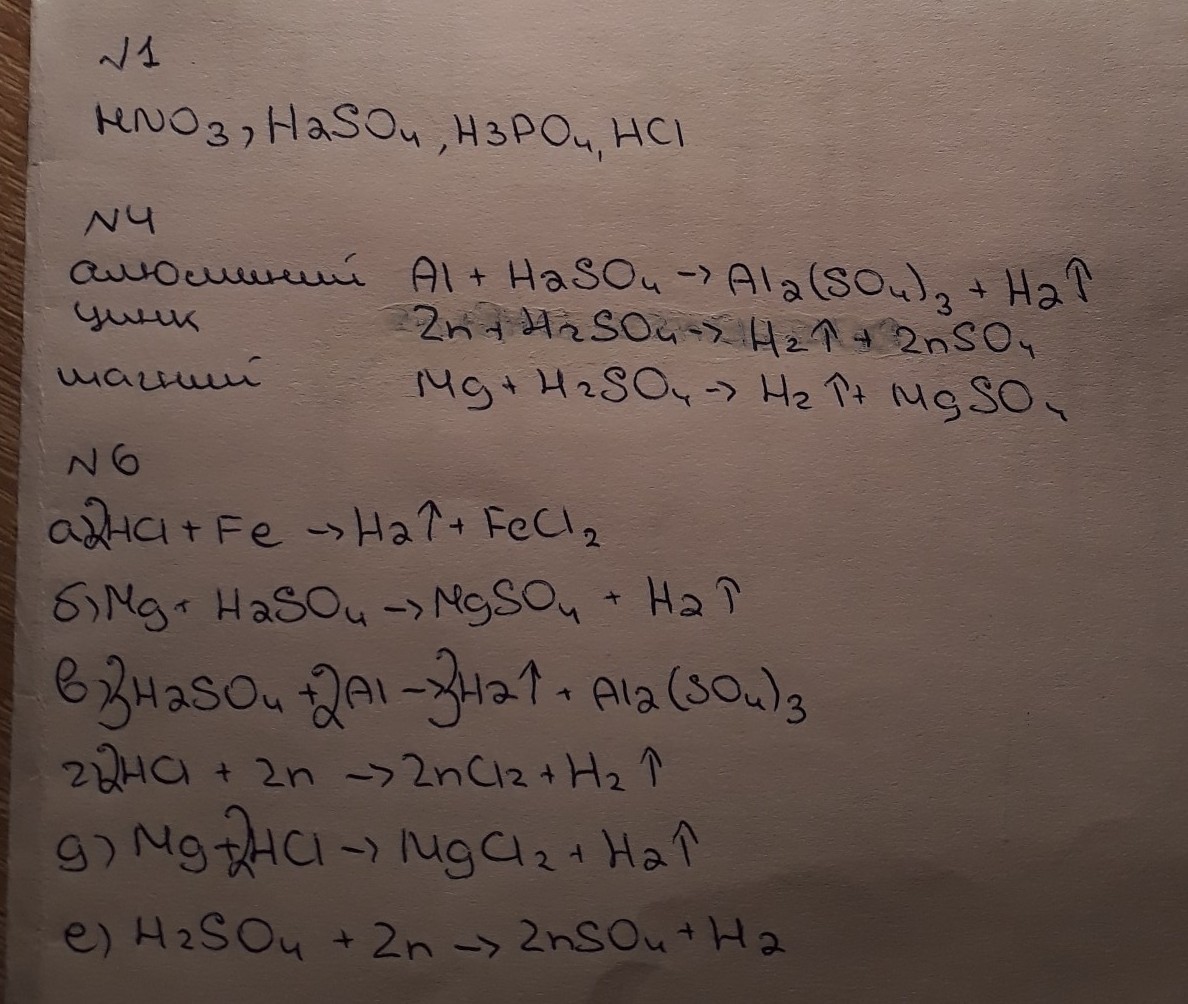 N1
HNO3, H2SO4, H3PO4, HCl
N4
алюминий Al + H2SO4 → Al2(SO4)3 + H2↑
цинк Zn + H2SO4 → H2↑ + ZnSO4
магний Mg + H2SO4 → H2↑ + MgSO4
N6
а) 2HCl + Fe → H2↑ + FeCl2
б) Mg + H2SO4 → MgSO4 + H2↑
в) 3H2SO4 + 2Al → 3H2↑ + Al2(SO4)3
г) 2HCl + Zn → ZnCl2 + H2↑
д) Mg + 2HCl → MgCl2 + H2↑
е) H2SO4 + Zn → ZnSO4 + H2